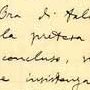 Ora di
la pretesa
concluso,
e insistenza